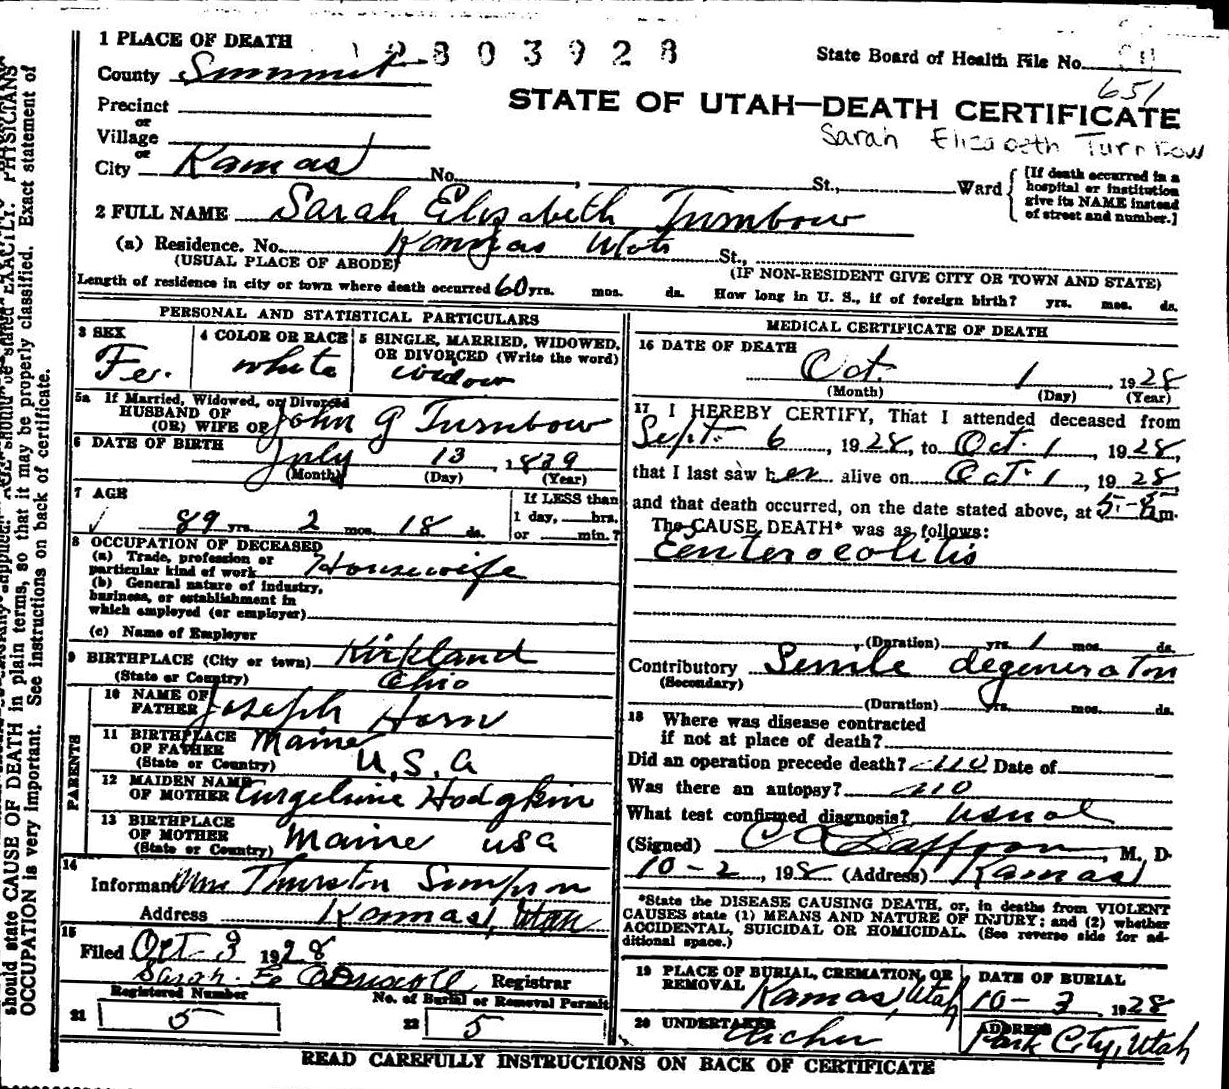 1 PLACE OF DEATH
2803928
State Board of Health File No.
County Summit
651
Precinct
STATE OF UTAH—DEATH CERTIFICATE
or
Village
Sarah Elizabeth Turnbow
or
City Kamas No. St., Ward
[If death occurred in a
hospital or institution
give its NAME instead
of street and number.]
2 FULL NAME Sarah Elizabeth Turnbow
(a) Residence. No. Kamas Utah St.,
(USUAL PLACE OF ABODE) (IF NON-RESIDENT GIVE CITY OR TOWN AND STATE)
Length of residence in city or town where death occurred 60 yrs. mos. ds. How long in U. S., if of foreign birth? yrs. mos. ds.
PERSONAL AND STATISTICAL PARTICULARS
3 SEX
Fe.
4 COLOR OR RACE
white
5 SINGLE, MARRIED, WIDOWED,
OR DIVORCED (Write the word)
widow
5a If Married, Widowed, or Divorced
HUSBAND OF
(OR) WIFE OF John G Turnbow
6 DATE OF BIRTH
July 13, 1839
(Month) (Day) (Year)
7 AGE
89 yrs. 2 mos. 18 ds.
If LESS than
1 day, hrs.
or min.?
8 OCCUPATION OF DECEASED
(a) Trade, profession or
particular kind of work Housewife
(b) General nature of industry,
business, or establishment in
which employed (or employer)
(c) Name of Employer
9 BIRTHPLACE (City or town) Kirkland
(State or Country) Ohio
PARENTS
10 NAME OF
FATHER Joseph Horn
11 BIRTHPLACE
OF FATHER Maine
(State or Country) U.S.A
12 MAIDEN NAME
OF MOTHER Hodgkin
13 BIRTHPLACE
OF MOTHER
(State or Country) Maine USA
14
Informant Mrs Thurston Simpson
Address Kamas, Utah
15
Filed Oct-3 1928
Sarah E O'Driscoll Registrar
Registered Number
21 5
No. of Burial or Removal Permit
22 5
MEDICAL CERTIFICATE OF DEATH
16 DATE OF DEATH
Oct 1, 1928
(Month) (Day) (Year)
17 I HEREBY CERTIFY, That I attended deceased from
Sept. 6, 1928, to Oct. 1, 1928,
that I last saw her alive on Oct. 1, 1928
and that death occurred, on the date stated above, at 5- m.
The CAUSE DEATH* was as follows:
Eenterocolitis
(Duration) yrs. 1 mos. ds.
Contributory Senile degeneraton
(Secondary)
(Duration) yrs. mos. ds.
18 Where was disease contracted
if not at place of death?
Did an operation precede death? no Date of
Was there an autopsy? no
What test confirmed diagnosis? usual
(Signed) M. D.
10-2, 1928 (Address) Kamas
*State the DISEASE CAUSING DEATH, or, in deaths from VIOLENT
CAUSES state (1) MEANS AND NATURE OF INJURY; and (2) whether
ACCIDENTAL, SUICIDAL OR HOMICIDAL. (See reverse side for ad-
ditional space.)
19 PLACE OF BURIAL, CREMATION, OR
REMOVAL Kamas, Utah
DATE OF BURIAL
10-3, 1928
20 UNDERTAKER
Archer
ADDRESS
Park City, Utah
READ CAREFULLY INSTRUCTIONS ON BACK OF CERTIFICATE
should state CAUSE OF DEATH in plain terms, so that it may be properly classified. Exact statement of
OCCUPATION is very important. See instructions on back of certificate.